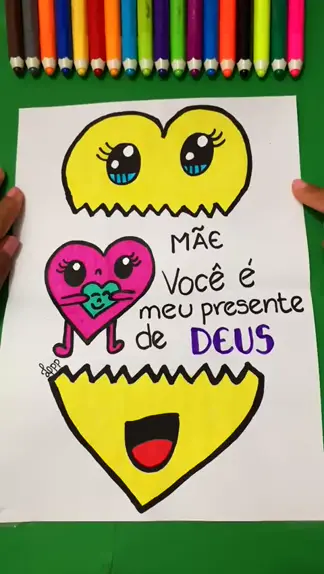 MÃE
Você é
meu presente
de DEUS